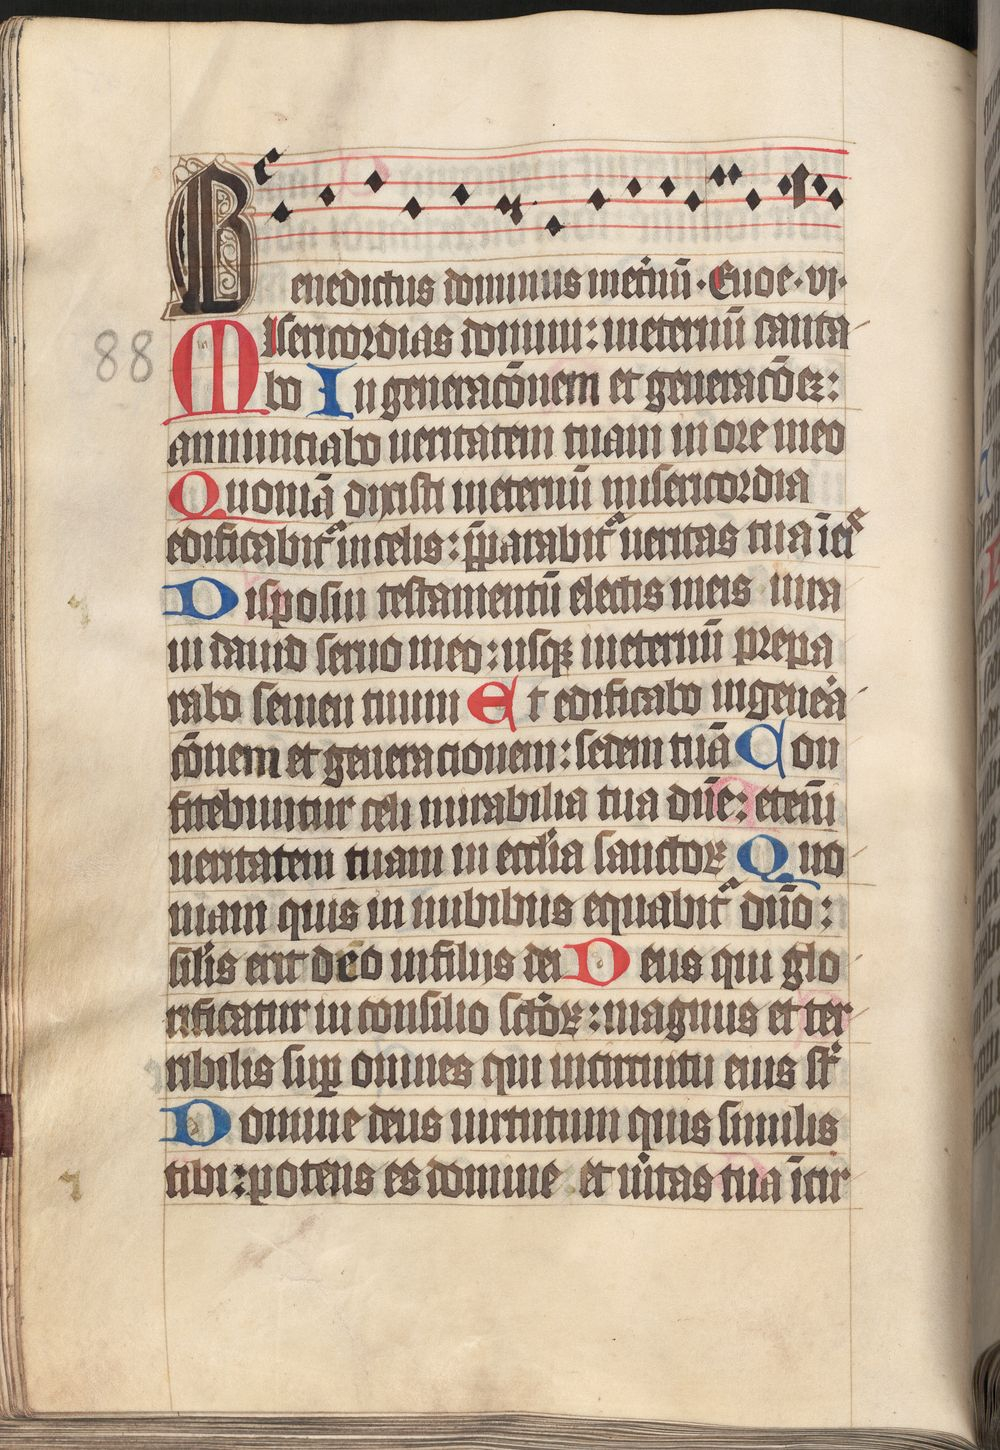 Benedictus dominus ineṫnū · Euoe · vi ·
Misericordias domini : ineternū canta
88
bo In generacōnem et generacōeꝫ :
annunciabo ueritatem tuam in ore meo
Quoniā dixisti ineternū misericordia
edificabit᷑ in celis : p̄parabit᷑ ueritas tua ī eis
Disposui testamentū electis meis iura
ui dauid seruo meo : usqꝫ ineternū prepa
rabo semen tuum Et edificabo in genera
cōnem et generacionem : sedem tuā Con
fitebuntur celi mirabilia tua dn̄e : etenī
ueritatem tuam in eccl̄ia sanctoꝝ Quo
niam quis in nubibus equabit᷑ dn̄o :
sil̄is erit deo in filijs dei Deus qui glo
rificatur in consilio sc̄oꝝ : magnus et ter
ribilis suꝑ omnes qui incircuitu eius st̄
Domine deus uirtutum quis similis
tibi : potens es domine et ūitas tua ī cir